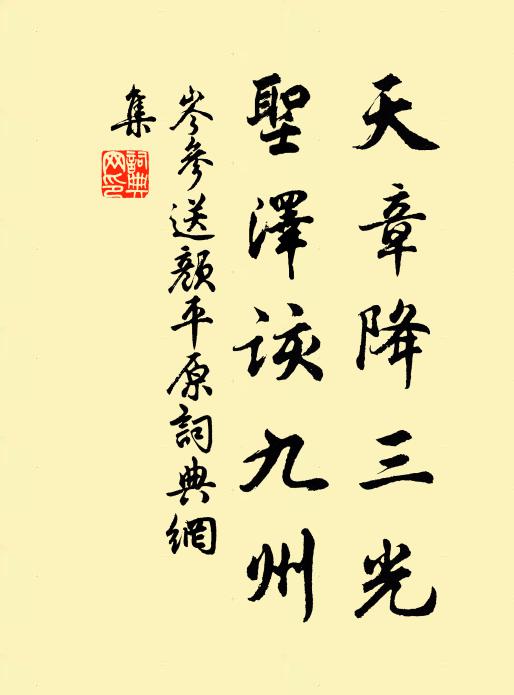 天章降三光
聖澤該九州
岑參送顏平原詞典網
集
詞典網印